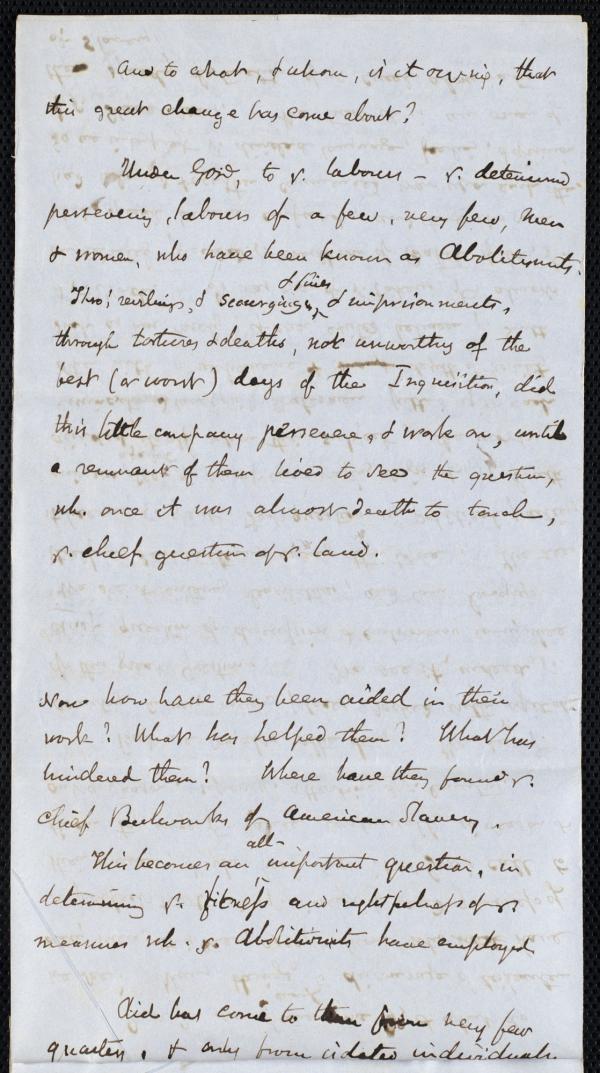 of Slavery.
And to what, & whom, is it owing, that
this great change has come about?
Under God, to ye. labours – ye. determined
persevering, labours of a few, very few, men
& women, who have been known as Abolitionists.
& fines
Thro' revilings, & scourgings, & imprisonments,
through tortures & deaths, not unworthy of the
best (or worst) days of the Inquisition, did
this little company persevere, & work on, until
a remnant of them lived to see the question,
wh. once it was almost death to touch,
ye. chief question of ye. land.
Now how have they been aided in their
work? What has helped them? What has
hindered them? Where have they found ye.
chief Bulwarks of American Slavery.
all-
This becomes an important question, in
determining ye. fitness and rightfulness of ye.
measures wh. ye. Abolitionists have employed
Aid has come to them from very few
quarters, & only from isolated individuals